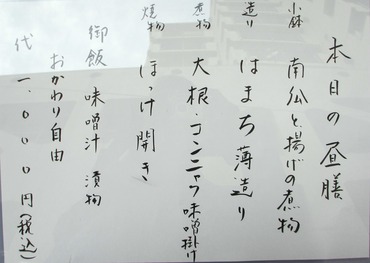 本日の昼膳
小鉢 南瓜と揚げの煮物
造り はまち薄造り
煮物 大根・コンニャク味噌掛け
焼物 ほっけ開き
御飯 味噌汁 漬物
おかわり自由
代 一、000円(税込)